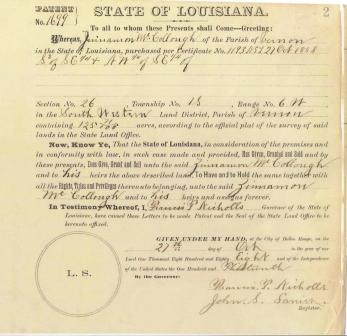 PATENT
No. 1699
STATE OF LOUISIANA.
2
To all to whom these Presents shall Come—Greeting:
Whereas, Jinnamon McCollough of the Parish of Vernon
in the State of Louisiana, purchased per Certificate No. Oct 1888
S½ of SE¼ & NW¼ of SE¼ of
Section No. 26 Township No. 1S, Range No. 6W
in the South Western Land District, Parish of Vernon
containing 125 acres, according to the official plat of the survey of said
lands in the State Land Office.
Now, Know Ye, That the State of Louisiana, in consideration of the premises and
in conformity with law, in such case made and provided, Has Given, Granted and Sold and by
these presents, Does Give, Grant and Sell unto the said Jinnamon McCollough
and to his heirs the above described land To Have and to Hold the same together with
all the Rights, Titles and Privileges thereunto belonging, unto the said Jinnamon
McCollough and to his heirs and assigns forever.
In Testimony Whereof, I, Francis T. Nicholls Governor of the State of
Louisiana, have caused these Letters to be made Patent and the Seal of the State Land Office to be
hereunto affixed.
L. S.
GIVEN UNDER MY HAND, at the City of Baton Rouge, on the
27th day of Oct in the year of our
Lord One Thousand Eight Hundred and Eighty Eight and of the Independence
of the United States the One Hundred and Thirteenth
By the Governor:
Francis T. Nicholls
John S. Lanier
Register.